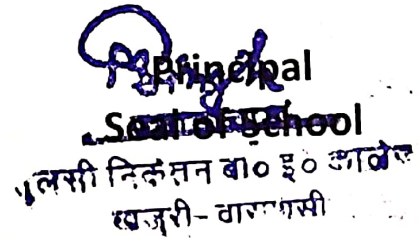 Principal
Seal of School
तुलसी निकेतन बा० इ० कालेज
खजुरी - वाराणसी